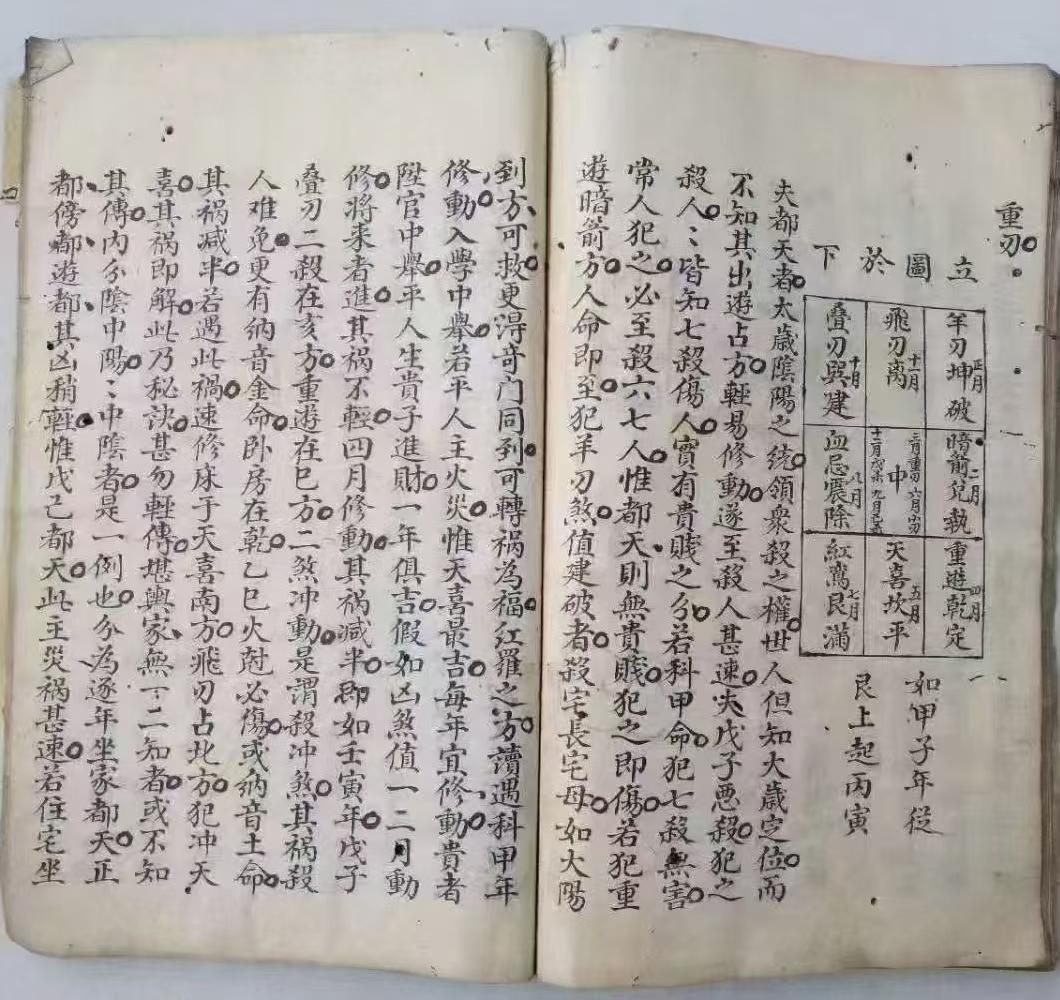 重刃
立圖於下
羊刃坤破 正月
暗箭兌執 二月
重遊乾定 四月
飛刃離 十一月
中 三月重刃 六月
十二月戊 九月
天喜坎平 五月
叠刃巽建 十月
血忌震除 八月
紅鸞艮滿 七月
如甲子年從
艮上起丙寅
夫都天者太歲陰陽之统領衆殺之權世人但知大歲定位而
不知其出遊占方輕易修動遂至殺人甚速夹戊子悪殺犯之
殺人〻皆知七殺傷人實有貴賤之分若科甲命犯七殺無害
常人犯之必至殺六七人惟都天則無貴賤犯之即傷若犯重
遊暗箭方人命即至犯羊刃煞值建破者殺宅長宅母如大陽
到方可救更淂竒门同到可轉祸為福紅羅之方讀遇科甲年
修動入學中舉若平人主火災惟天喜最吉每年宜修動貴者
陞官中舉平人生貴子進財一年俱吉假如凶煞值一二月動
修將来者進其祸不輕四月修動其祸減半即如壬寅年戊子
叠刃二殺在亥方重遊在巳方二煞冲動是謂殺冲煞其祸殺
人难免更有納音金命卧房在乾乙巳火尅必傷或納音土命
其祸减半若遇此禍速修床于天喜南方飛刃占北方犯冲天
喜其祸即解此乃秘訣甚勿輕傳堪輿家無一二知者或不知
其傳内分陰中陽〻中陰者是一例也分為逐年坐家都天正
都傍都遊都其凶稍輕惟戊己都天此主災祸甚速若住宅坐